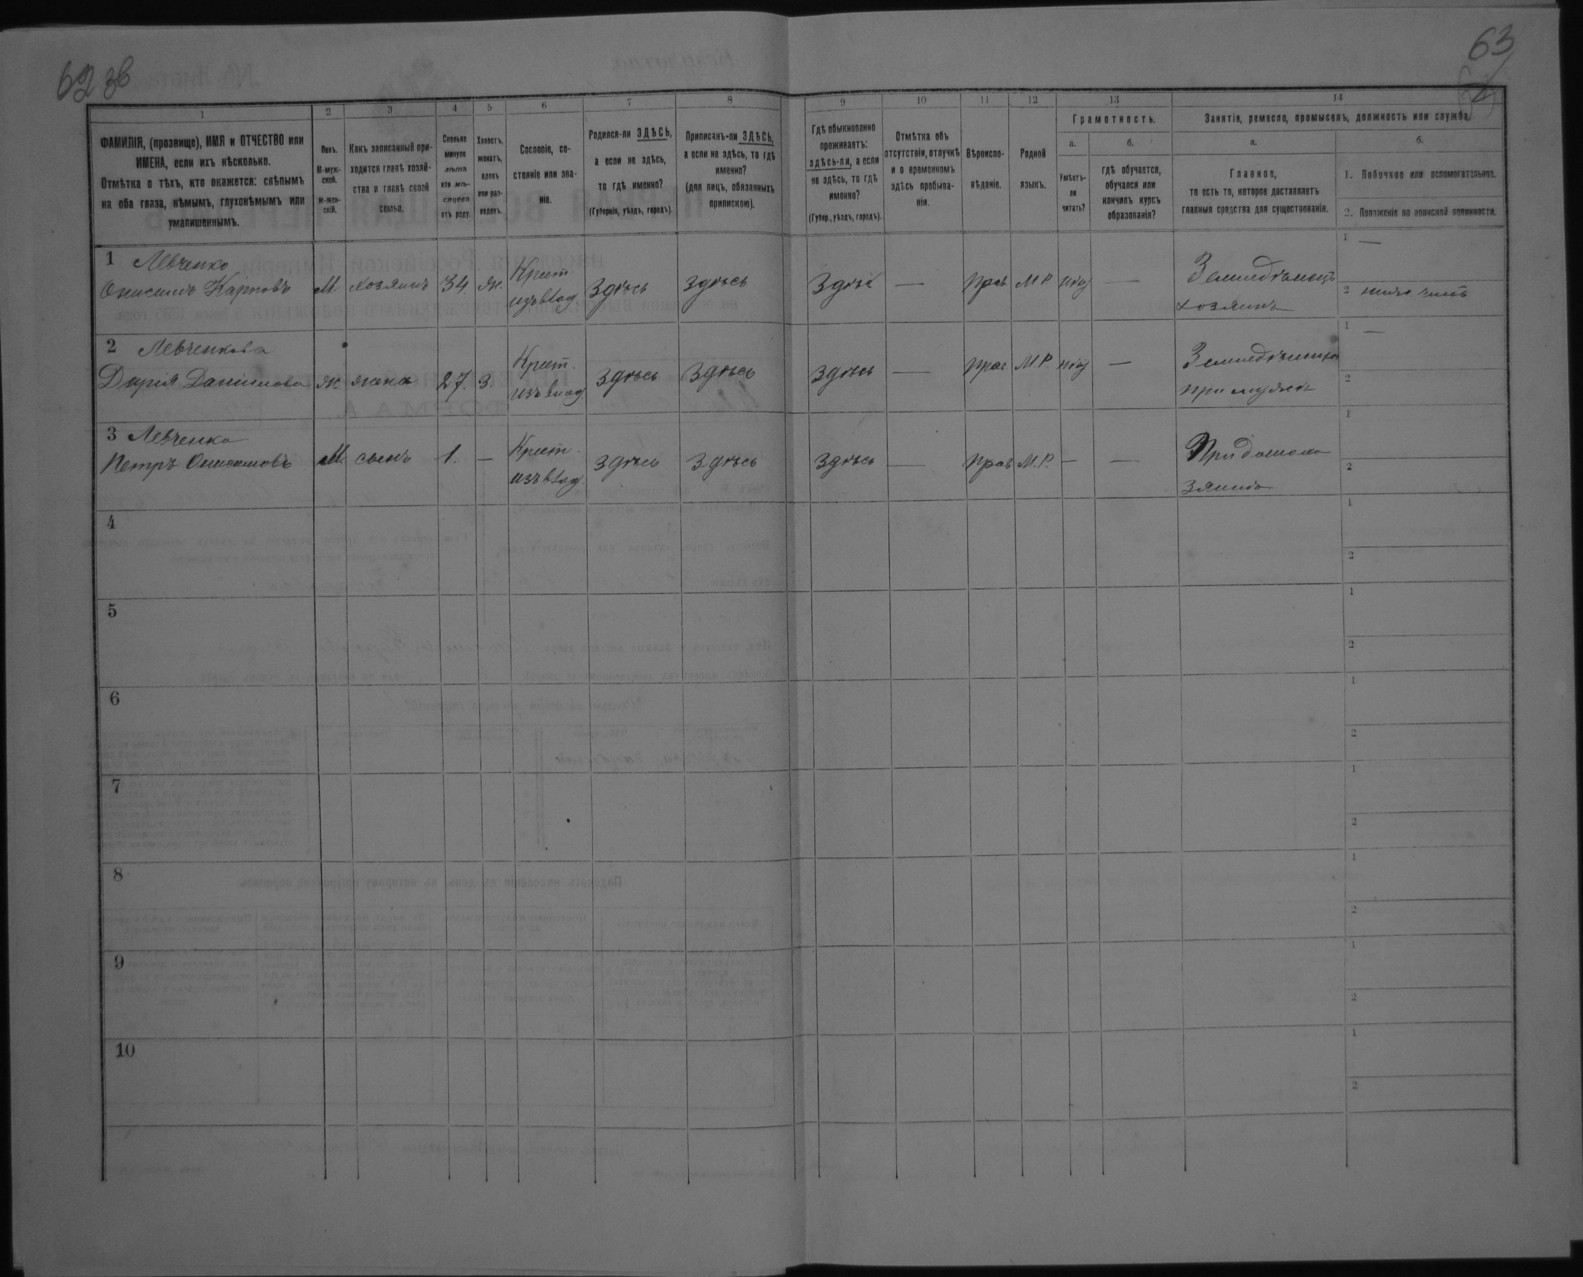 62 зв
63
1
2
3
4
5
6
7
8
9
10
11
12
13
14
ФАМИЛІЯ, (прозвище), ИМЯ и ОТЧЕСТВО или
ИМЕНА, если ихъ нѣсколько.
Отмѣтка о тѣхъ, кто окажется: слѣпымъ
на оба глаза, нѣмымъ, глухонѣмымъ или
умалишеннымъ.
Полъ.
М-муж-
ской.
Ж-жен-
скій.
Какъ записанный при-
ходится главѣ хозяй-
ства и главѣ своей
семьи.
Сколько
минуло
лѣтъ
или мѣ-
сяцевъ
отъ роду.
Холостъ,
женатъ,
вдовъ
или раз-
веденъ.
Сословіе, со-
стояніе или зва-
ніе.
Родился-ли ЗДѢСЬ,
а если не здѣсь,
то гдѣ именно?
(Губернія, уѣздъ, городъ).
Приписанъ-ли ЗДѢСЬ,
а если не здѣсь, то гдѣ
именно?
(для лицъ, обязанныхъ
припискою).
Гдѣ обыкновенно
проживаетъ:
здѣсь-ли, а если
не здѣсь, то гдѣ
именно?
(Губер., уѣздъ, городъ).
Отмѣтка объ
отсутствіи, отлучкѣ
и о временномъ
здѣсь пребыва-
ніи.
Вѣроиспо-
вѣданіе.
Родной
языкъ.
Грамотность.
а.
Умѣетъ-
ли
читать?
б.
гдѣ обучается,
обучался или
кончилъ курсъ
образованія?
Занятіе, ремесло, промыселъ, должность или служба.
а.
Главное,
то есть то, которое доставляетъ
главныя средства для существованія.
б.
1. Побочное или вспомогательное.
2. Положеніе по воинской повинности.
1 Левченко
Онисимъ Карповъ
М
хозяинъ
34
ж.
Крест
изъ влад
Здѣсь
Здѣсь
Здѣсь
—
прав
М.Р.
нѣтъ
—
Земледѣлецъ
хозяинъ
1 —
2
2 Левченкова
Дарія Данилова
ж
жена
27
З
Крест.
изъ влад
Здѣсь
Здѣсь
Здѣсь
—
прав
М.Р.
нѣтъ
—
при мужѣ
1 —
2
3 Левченко
Петръ Онисимовъ
М
сынъ
1.
—
Крест.
изъ влад
Здѣсь
Здѣсь
Здѣсь
—
прав
М.Р.
—
—
1
2
4
1
2
5
1
2
6
1
2
7
1
2
8
1
2
9
1
2
10
1
2